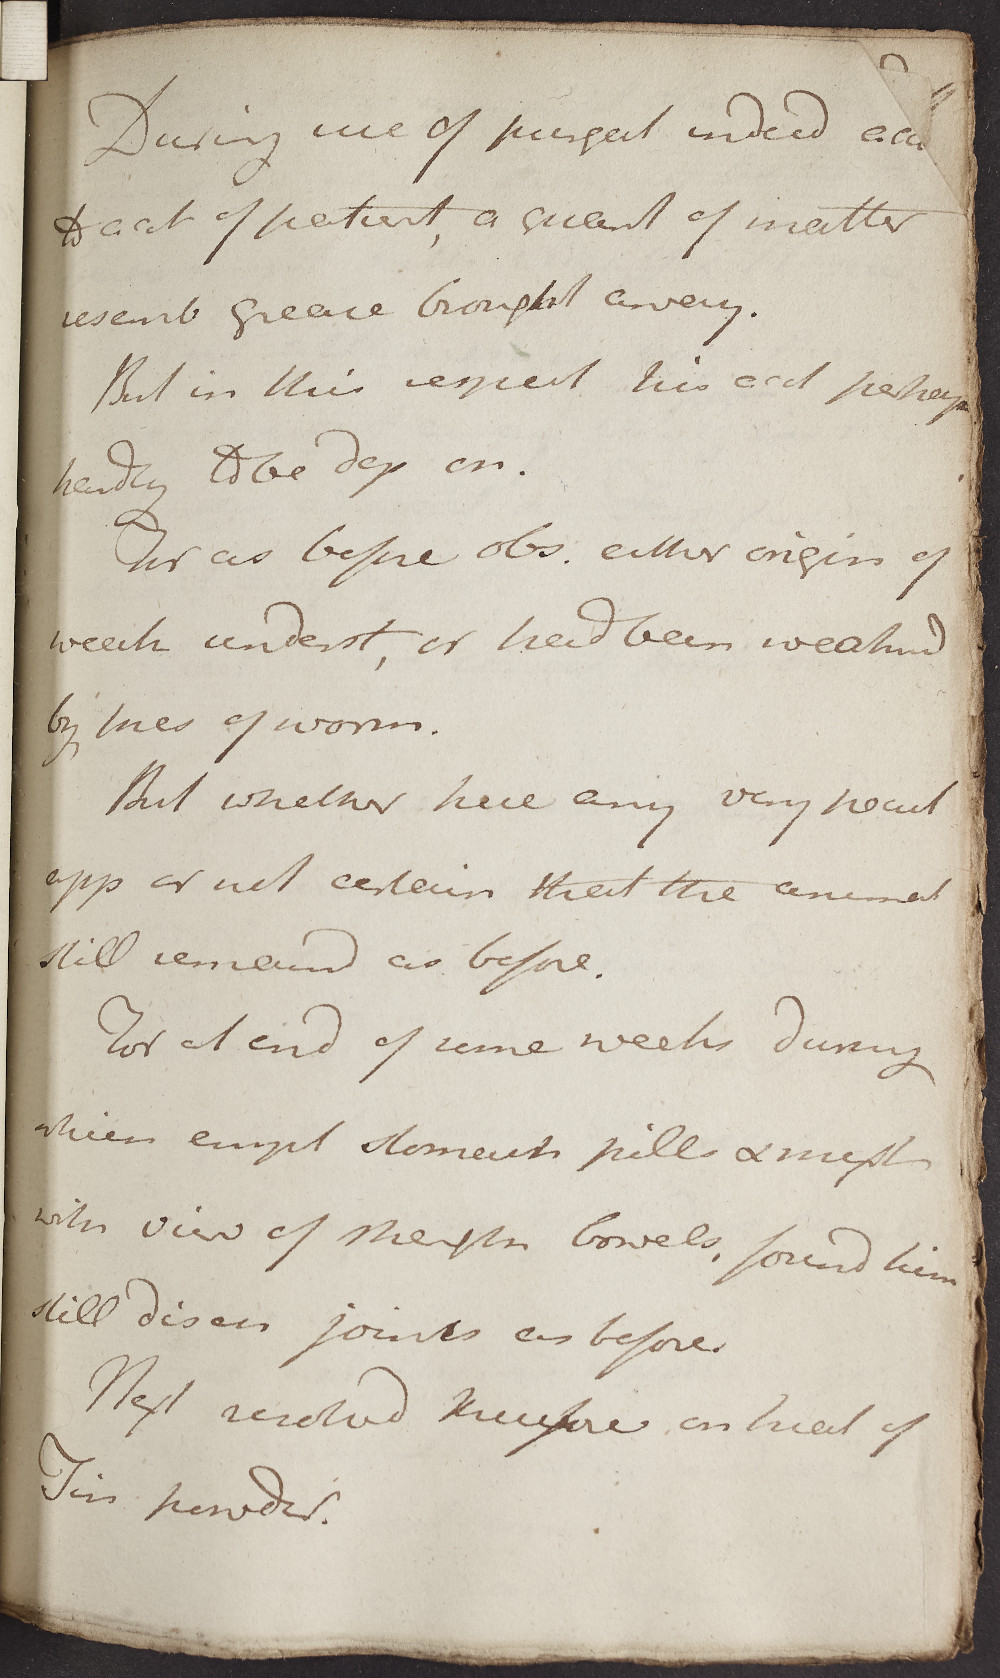 During use of purgat indeed acc
to act of patient, a quant of matter
resemb grease brought away.
But in this respect his act perhap
hardly to be dep on.
For as before obs. either origin of
weak underst, or had been weakned
by pres of worm.
But whether here any very
app or not certain that the animal
still remaind as before.
For at end of some weeks during
which empl stomach pills &
with view of strength bowels, found him
still disch joints as before.
Next resolved therefore on treat of
Tin powder.